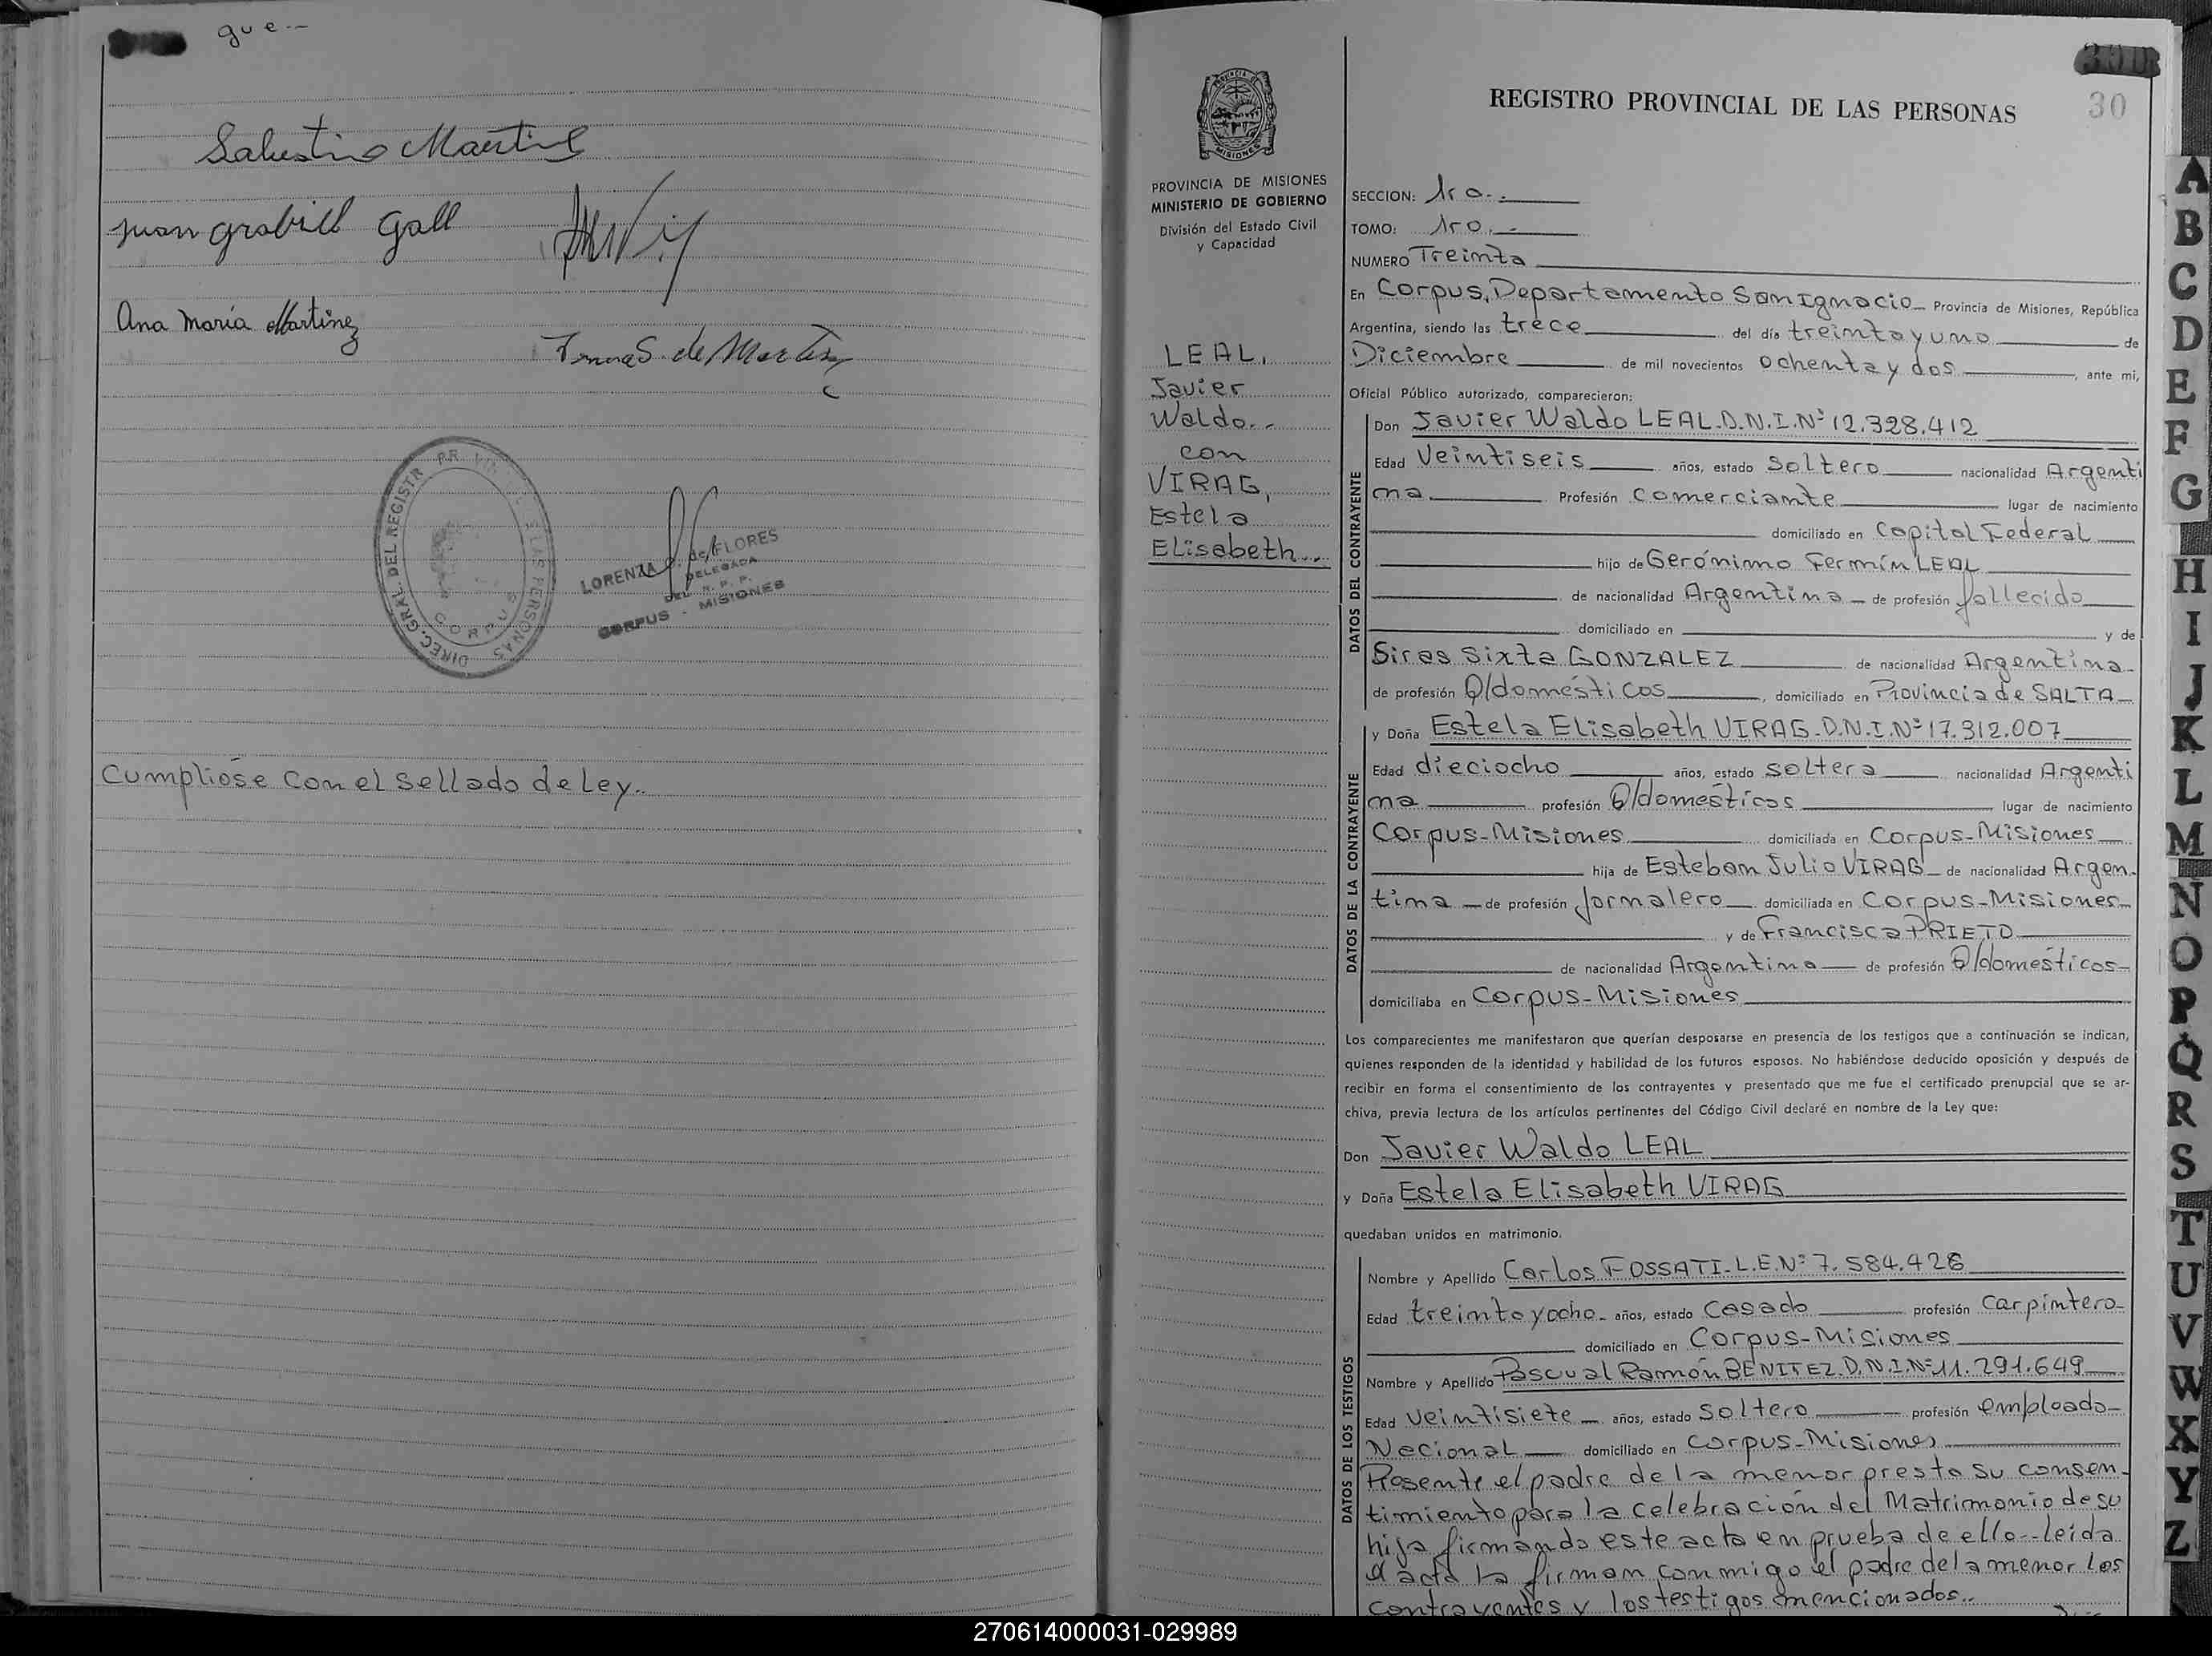 gue--
Salustino Martinez
juan grabiel Gall
Ana María Martinez
S. de Martinez
DIREC. GRAL. DEL REGISTR PR LAS PERSONAS
CORPUS
LORENZA de FLORES
DELEGADA
DEL R. P. P.
CORPUS - MISIONES
Cumplióse con el sellado de Ley.-
PROVINCIA DE MISIONES
MINISTERIO DE GOBIERNO
División del Estado Civil
y Capacidad
LEAL,
Javier
Waldo.-
con
VIRAG,
Estela
Elisabeth...
REGISTRO PROVINCIAL DE LAS PERSONAS
30
SECCION: 1ra.-
TOMO: 1ro.-
NUMERO Treinta
En Corpus, Departamento San Ignacio Provincia de Misiones, República
Argentina, siendo las trece del día treinta y uno de
Diciembre de mil novecientos ochenta y dos, ante mí,
Oficial Público autorizado, comparecieron:
DATOS DEL CONTRAYENTE
Don Javier Waldo LEAL.D.N.I.Nº 12.328.412
Edad Veintiseis años, estado Soltero nacionalidad Argenti
na Profesión comerciante lugar de nacimiento
domiciliado en Capital Federal
hijo de Gerónimo Fermín LEAL
de nacionalidad Argentina de profesión fallecido
domiciliado en y de
Siras Sixta GONZALEZ de nacionalidad Argentina
de profesión Q/domésticos, domiciliado en Provincia de SALTA
DATOS DE LA CONTRAYENTE
y Doña Estela Elisabeth VIRAG.D.N.I.Nº 17.312.007
Edad dieciocho años, estado soltera nacionalidad Argenti
na profesión Q/domésticos lugar de nacimiento
Corpus-Misiones domiciliada en Corpus-Misiones
hija de Esteban Julio VIRAG de nacionalidad Argen-
tina de profesión jornalero domiciliada en Corpus-Misiones
y de Francisca PRIETO
de nacionalidad Argentina de profesión Q/domésticos
domiciliaba en Corpus-Misiones
Los comparecientes me manifestaron que querían desposarse en presencia de los testigos que a continuación se indican,
quienes responden de la identidad y habilidad de los futuros esposos. No habiéndose deducido oposición y después de
recibir en forma el consentimiento de los contrayentes y presentado que me fue el certificado prenupcial que se ar-
chiva, previa lectura de los artículos pertinentes del Código Civil declaré en nombre de la Ley que:
Don Javier Waldo LEAL
y Doña Estela Elisabeth VIRAG
quedaban unidos en matrimonio.
DATOS DE LOS TESTIGOS
Nombre y Apellido Carlos FOSSATI.L.E.Nº 7.584.426
Edad treinta y ocho años, estado Casado profesión Carpintero
domiciliado en Corpus-Misiones
Nombre y Apellido Pascual Ramón BENITEZ.D.N.I.Nº 11.291.649
Edad veintisiete años, estado Soltero profesión empleado
Nacional domiciliado en Corpus-Misiones
Presente el padre de la menor presta su consen-
timiento para la celebración del Matrimonio de su
hija firmando este acta en prueba de ello--leida
el acta la firman conmigo el padre de la menor los
contrayentes y los testigos mencionados..
A
B
C
D
E
F
G
H
I
J
K
L
M
N
O
P
Q
R
S
T
U
V
W
X
Y
Z
270614000031-029989